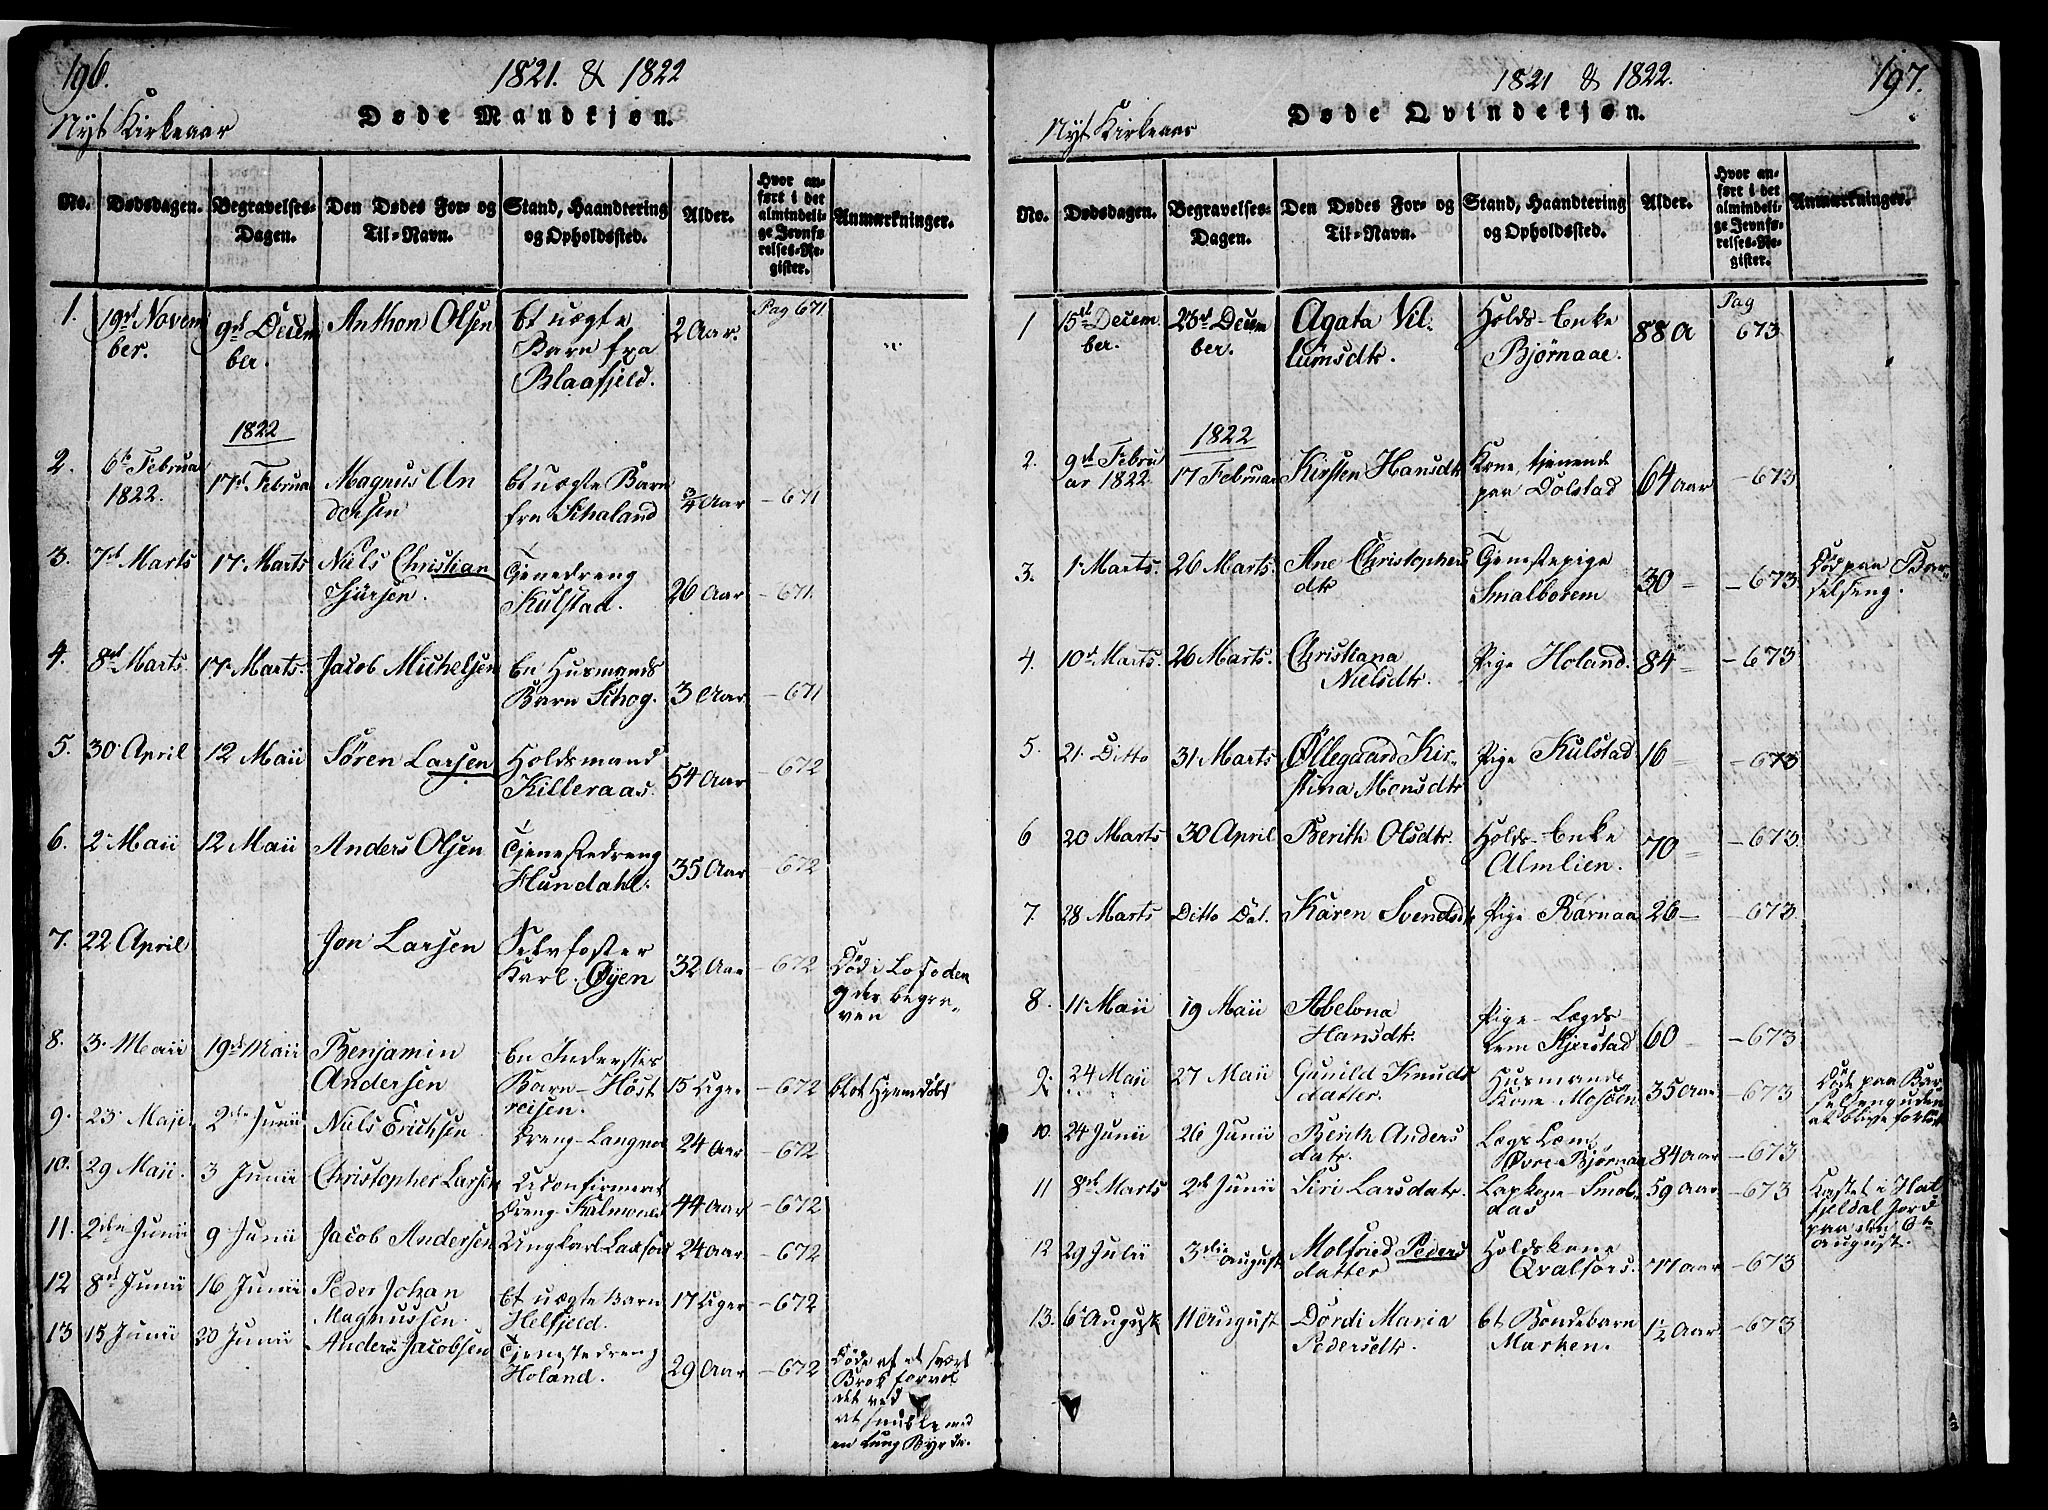 196.
1821. & 1822
Døde Mandkjøn.
Nyt Kirkeaar
No. Dødsdagen. Begravelses-Dagen. Den Dødes For- og Til-Navn. Stand, Haandtering og Opholdssted. Alder. Hvor anført i det almindelige Jevnførelses-Register. Anmærkninger.
1. 19de November. 9de December. Anthon Olsen Et uægte Barn fra Blaafjeld. 2 Aar. Pag 671 "
1822
2. 6te Februar 1822. 17de Februar Magnus Andersen Et uægte Barn fra Schaland 3/4 Aar - 671
3. 7de Marts 17. Marts Niels Christian Sjursen. Tjenedreng Kulstad. 26 Aar - 671
4. 8de Marts. 17. Marts. Jacob Michelsen En Husmands Barn Schog. 3 Aar - 671
5. 30 April 12 Maii Søren Larsen Holdsmand Killeraas. 54 Aar - 672
6. 2. Maii 12 Maii Anders Olsen Tjenestedreng Hundahl. 35 Aar - 672
7. 22 April Jon Larsen Selvfoster Karl. Øyen 32 Aar - 672 Død i Lofoden og der begraven
8. 3. Maii 19de Maii Benjamin Andersen En Inderstes Barn - Høstreisen. 15 Uger - 672 blot Hjemedøbt
9. 23. Maji. 2den Junii Niels Erichsen Dreng - Langnæs 24 Aar - 672
10. 29 Maii. 3 Junii Christopher Larsen Uconfirmeret Dreng - 44 Aar - 672
11. 2den Junii 9 Junii Jacob Andersen Ungkarl Laxfors 24 Aar - 672
12 8de Junii 16 Junii Peder Johan Magnussen. Et uægte Barn Helfjeld. 17 Uger - 672
13 15 Junii 20 Junii Anders Jacobsen Tjenestedreng Holand. 29 Aar - 672 Døde af et svært Brok forvoldet ved at snuble med en tung Byrde.
1821 & 1822.
197.
Døde Qvindekjøn.
Nyt Kirkeaar
No. Dødsdagen. Begravelses-Dagen. Den Dødes For- og Til-Navn. Stand, Haandtering og Opholdssted. Alder. Hvor anført i det almindelige Jevnførelses-Register. Anmærkninger.
1 15de December. 23de December. Agata Villumsdtr. Holds-Enke Bjørnaae. 88 A Pag 673
1822
2. 9de Februar 1822. 17 Februar Kirsten Hansdtr Kone, tjenende paa Dolstad 64 Aar - 673
3. 1. Marts. 26 Marts. Ane Christophersdtr Tjenestepige Smalborem 30 - - 673. Død paa Barselseng.
4. 10de Marts. 26 Marts. Christiana Nielsdtr. Pige Holand. 84 - - 673
5. 21. Ditto 31 Marts Øllegaard Kirstina Monsdtr Pige Kulstad 16 - - 673
6 20 Marts 30 April Berith Olsdtr. Holds-Enke Almlien. 70 - - 673
7 28 Marts Ditto Dat. Karen Svendsdtr Pige Ravnaa 26 - - 673
8. 11. Maii 19 Maii Abelona Hansdtr. Pige - Lægdslem Kjerstad 60 - - 673
9. 24 Maii 27 Maii Gunild Knudsdatter. Husmands Kone Mosøen 35 Aar - 673 Døde paa Barselseng uden at blive forløst
10. 24 Junii 26 Junii Berith Andersdatr. Lægs Læm Øvre-Bjørnaa 84 Aar - 673
11 8de Marts 2de Junii Siri Larsdatr. Lapkone - 59 Aar - 673 Kastet i Hatfjeldal Jord paa den 6te August.
12 29 Julii 3die August Molfrid Pedersdatter Holdskone Qvalfors. 77 Aar - 673
13. 6te August 11 August Dordi Maria Pedersdtr Et Bondebarn Marken. 1 1/2 Aar - 673